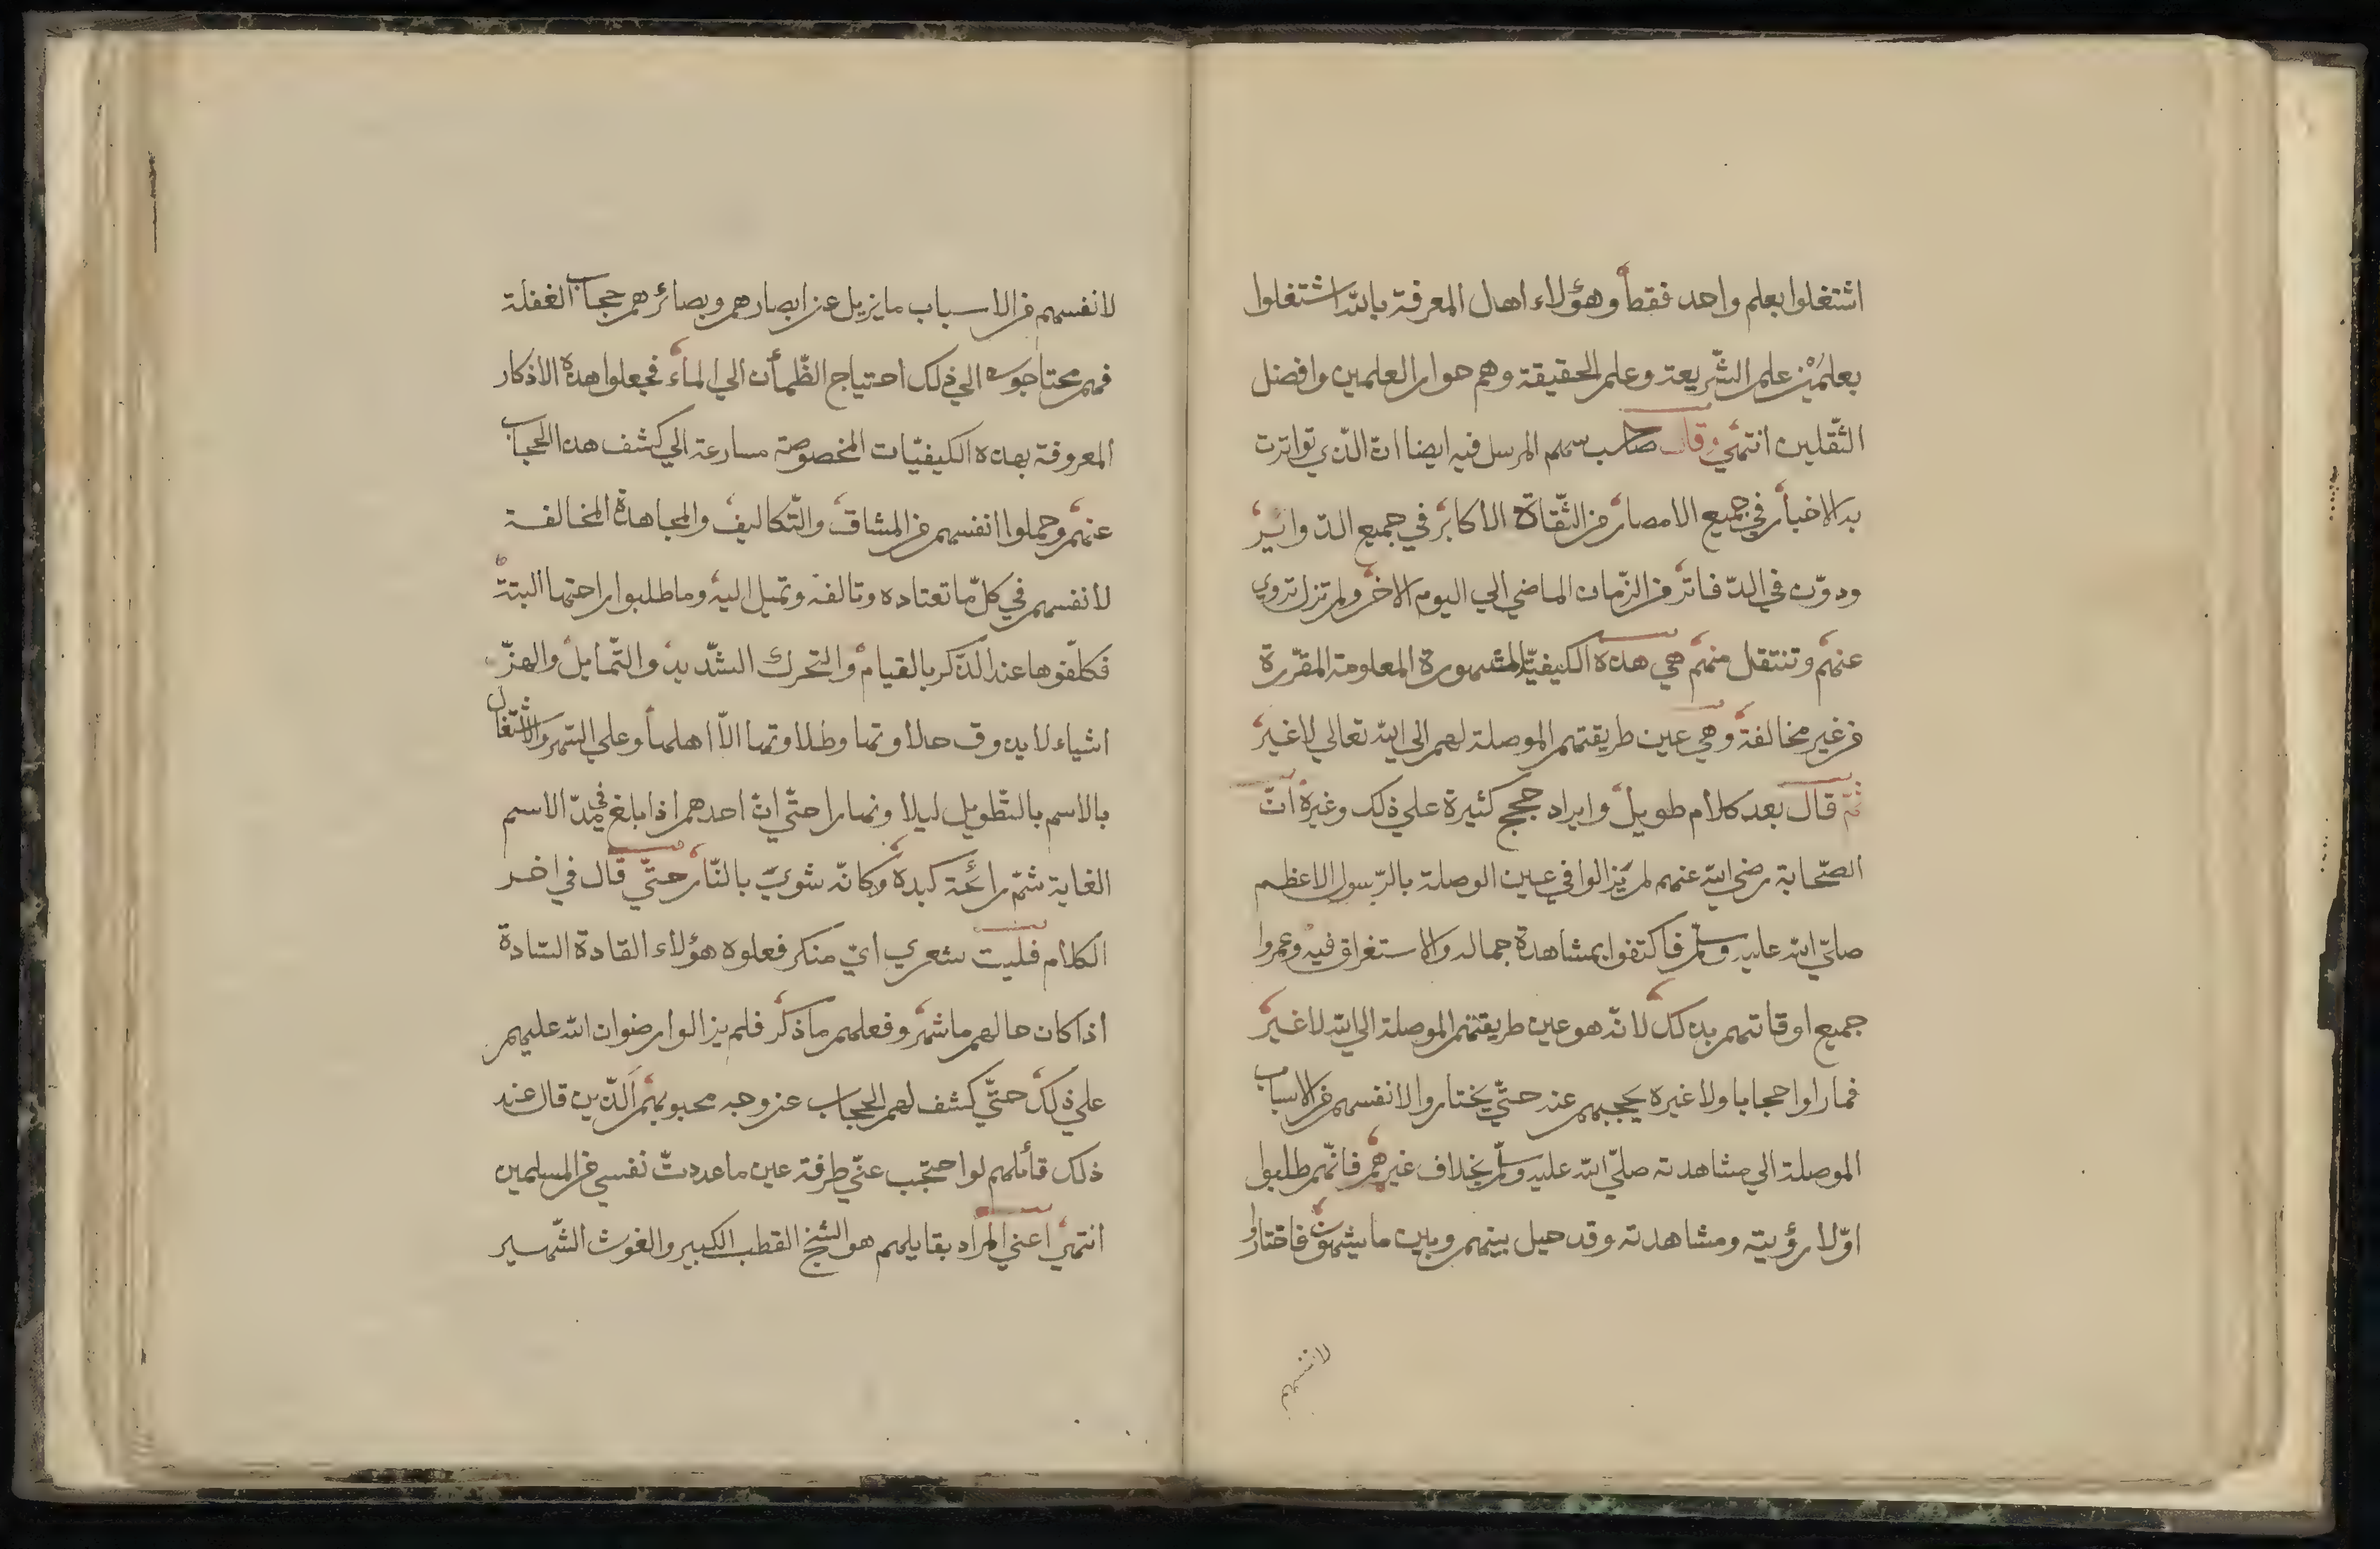 اشتغلوا بعلم واحد فقط وهؤلاء اهل المعرفة بالله اشتغلوا
بعلمين علم الشريعة وعلم الحقيقة وهم حواري العلمين وافضل
الثقلين انتهي وقال صاحب سهم المرسل فيه ايضا ان الذي تواترت
به الاخبار في جميع الامصار من الثقاة الاكابر في جميع الدوائر
ودون في الدفاتر من الزمان الماضي الي اليوم الاخر ولم تزل تروي
عنهم وتنتقل منهم هي هذه الكيفية المشهورة المعلومة المقررة
من غير مخالفة وهي عين طريقتهم الموصلة لهم الي الله تعالي لا غير
ثم قال بعد كلام طويل وايراد حجج كثيرة علي ذلك وغيره ان
الصحابة رضي الله عنهم لم يزالوا في عين الوصلة بالرسول الاعظم
صلي الله عليه وسلم فاكتفوا بمشاهدة جماله والاستغراق فيه وعمروا
جميع اوقاتهم بذلك لانه هو عين طريقتهم الموصلة الي الله لا غير
فما راوا حجابا ولا غيره يحجبهم عنه حتي يختاروا لانفسهم من الاسباب
الموصلة الي مشاهدته صلي الله عليه وسلم بخلاف غيرهم فانهم طلبوا
اولا رؤيته ومشاهدته وقد حيل بينهم وبين ما يشتهون فاختاروا
لانفسهم
لانفسهم من الاسباب ما يزيل عن ابصارهم وبصائرهم حجاب الغفلة
فهم محتاجون الي ذلك احتياج الظمأن الي الماء فجعلوا هذه الاذكار
المعروفة بهذه الكيفيات المخصوصة مسارعة الي كشف هذا الحجاب
عنهم وحملوا انفسهم من المشاق والتكاليف والمجاهدة المخالفة
لانفسهم في كل ما تعتاده وتالفه وتميل اليه وما طلبوا راحتها البتة
فكلفوها عند الذكر بالقيام والتحرك الشديد والتمايل والهز
اشياء لا يذوق حلاوتها وطلاوتها الا اهلها وعلي السهر والاشتغال
بالاسم بالتطويل ليلا ونهارا حتي ان احدهم اذا بلغ في مد الاسم
الغاية شم رائحة كبده وكانه شوي بالنار حتي قال في اخر
الكلام فليت شعري اي منكر فعلوه هؤلاء القادة السادة
اذا كان حالهم ما شهر وفعلهم ما ذكر فلم يزالوا رضوان الله عليهم
علي ذلك حتي كشف لهم الحجاب عن وجه محبوبهم الذين قال عند
ذلك قائلهم لو احتجب عني طرفة عين ما عددت نفسي من المسلمين
انتهي اعني المراد بقايلهم هو الشيخ القطب الكبير والغوث الشهير